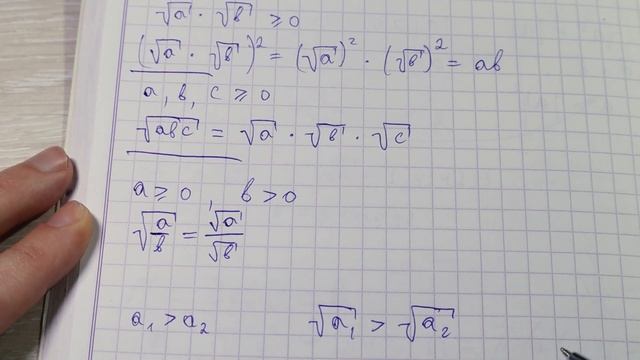 √a · √b ≥ 0
(√a · √b)² = (√a)² · (√b)² = ab
a, b, c ≥ 0
√abc = √a · √b · √c
a ≥ 0, b > 0
√(a/b) = √a/√b
a₁ > a₂ √a₁ > √a₂